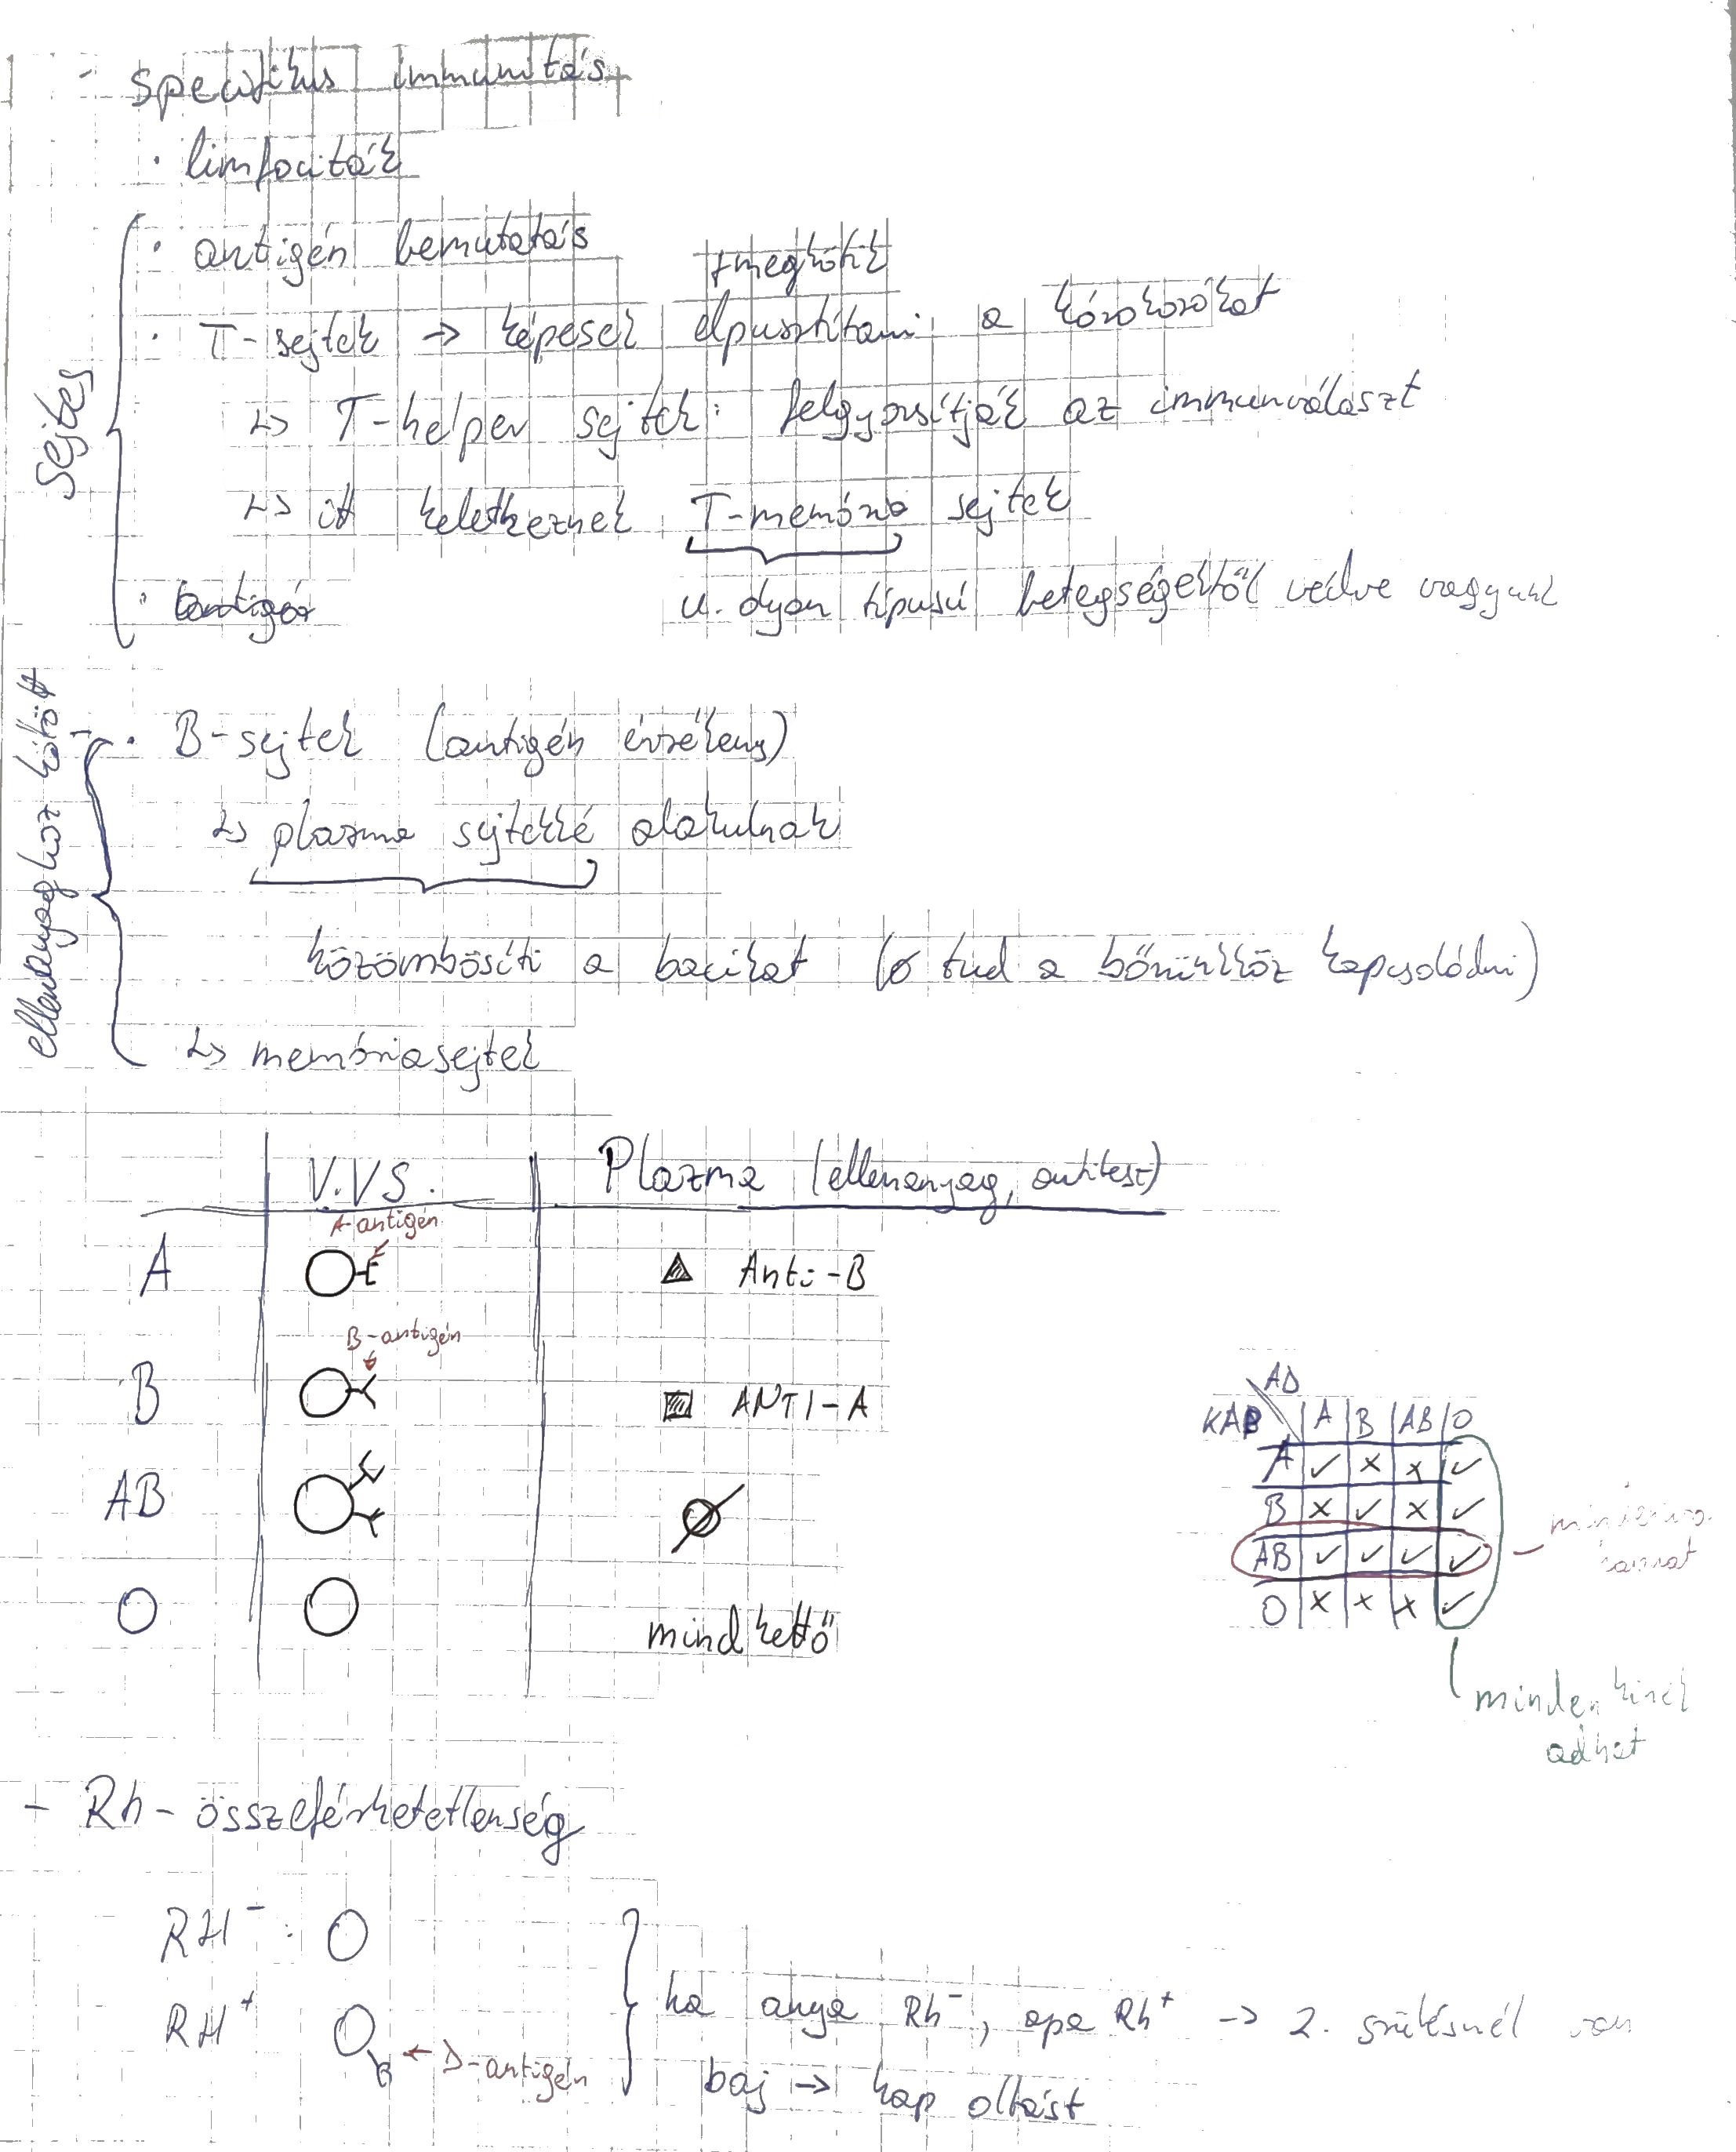 - specifikus immunitás
· limfociták
Sejtes
· antigén bemutatás
+megkötik
· T-sejtek → képesek elpusztítani a kórokozókat
↳ T-helper sejtek: felgyorsítják az immunválaszt
↳ itt keletkeznek T-memória sejtek
u. olyan típusú betegségektől védve vagyunk
ellenanyaghoz kötött
· B-sejtek (antigén érzékeny)
↳ plazma sejtekké alakulnak
közömbösíti a bacikat (ø tud a bőrünkhöz kapcsolódni)
↳ memóriasejtek
V.V.S. Plazma (ellenanyag, antitest)
A-antigén
A Anti-B
B-antigén
B ANTI-A
AB ∅
O mind kettő
AD
KAP A B AB O
A ✓ × × ✓
B × ✓ × ✓
AB ✓ ✓ ✓ ✓
O × × × ✓
minden kinek
adhat
- Rh-összeférhetetlenség
RH⁻:
RH⁺
← D-antigén
ha anya Rh⁻, apa Rh⁺ → 2. szülésnél van
baj → kap oltást